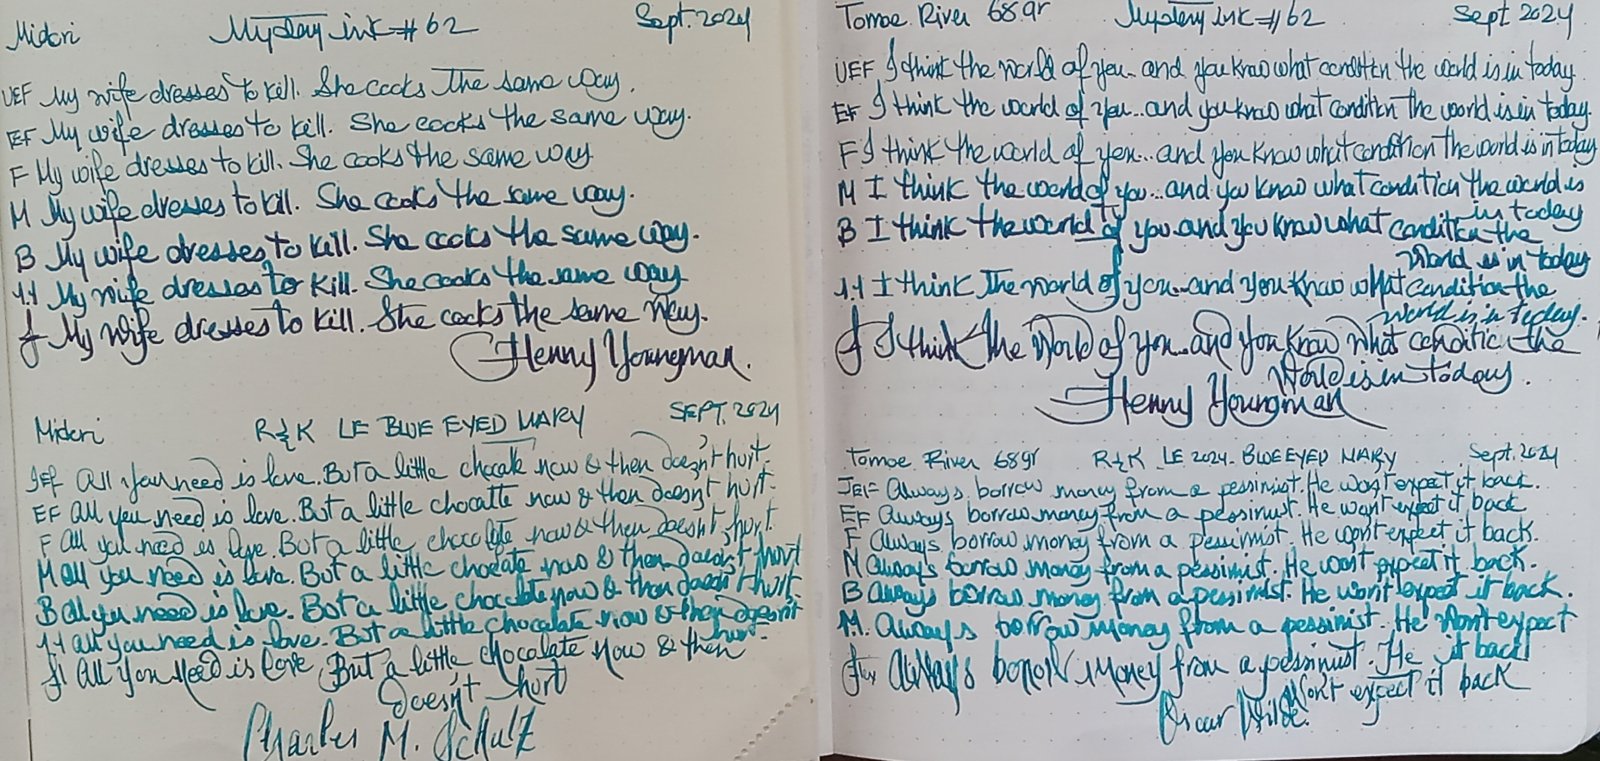 Midori Mystery ink #62 Sept. 2024
UEF My wife dresses to kill. She cooks The same way.
EF My wife dresses to kill. She cooks the same way.
F My wife dresses to kill. She cooks the same way
M My wife dresses to kill. She cooks the same way.
B My wife dresses to kill. She cooks the same way.
1.1 My wife dresses to kill. She cooks the same way
fl My wife dresses to kill. She cooks the same way.
Henny Youngman.
Midori R&K LE BLUE EYED MARY SEPT. 2024
UEF All you need is love. But a little chocolate now & then doesn't hurt.
EF All you need is love. But a little chocolatte now & then doesn't hurt.
F All you need is love. But a little chocolate now & then doesn't hurt.
M All you need is love. But a little chocolate now & then doesn't hurt
B All you need is love. But a little chocolate now & then doesn't hurt.
1.1 all you need is love. But a little chocolate now & then doesn't
hurt.
fl All you Need is love. But a little chocolate Now & then
Doesn't hurt
Charles M. Schulz
Tomoe River 68gr Mystery ink #62 Sept 2024
UEF I think the world of you... and you know what condition the world is in today.
EF I think the world of you... and you know what condition the world is in today.
F I think the world of you... and you know what condition the world is in today
M I think the world of you... and you know what condition the world is
in today
B I think the world of you and you know what condition the
World is in today
1.1 I think The world of you... and you know what condition the
world is in today.
fl I think the World of you... and you know what condition the
World is in today.
Henny Youngman
Tomoe River 68gr R&K LE 2024 - BLUE EYED MARY Sept. 2024
UEF Always borrow money from a pessimist. He won't expect it back.
EF Always borrow money from a pessimist. He won't expect it back
F Always borrow money from a pessimist. He won't expect it back.
M Always borrow money from a pessimist. He won't expect it back.
B Always borrow money from a pessimist. He won't expect it back.
1.1. Always borrow money from a pessimist. He Won't expect
it back
flex Always borrow Money from a pessimist. He
Won't expect it back
Oscar Wilde.